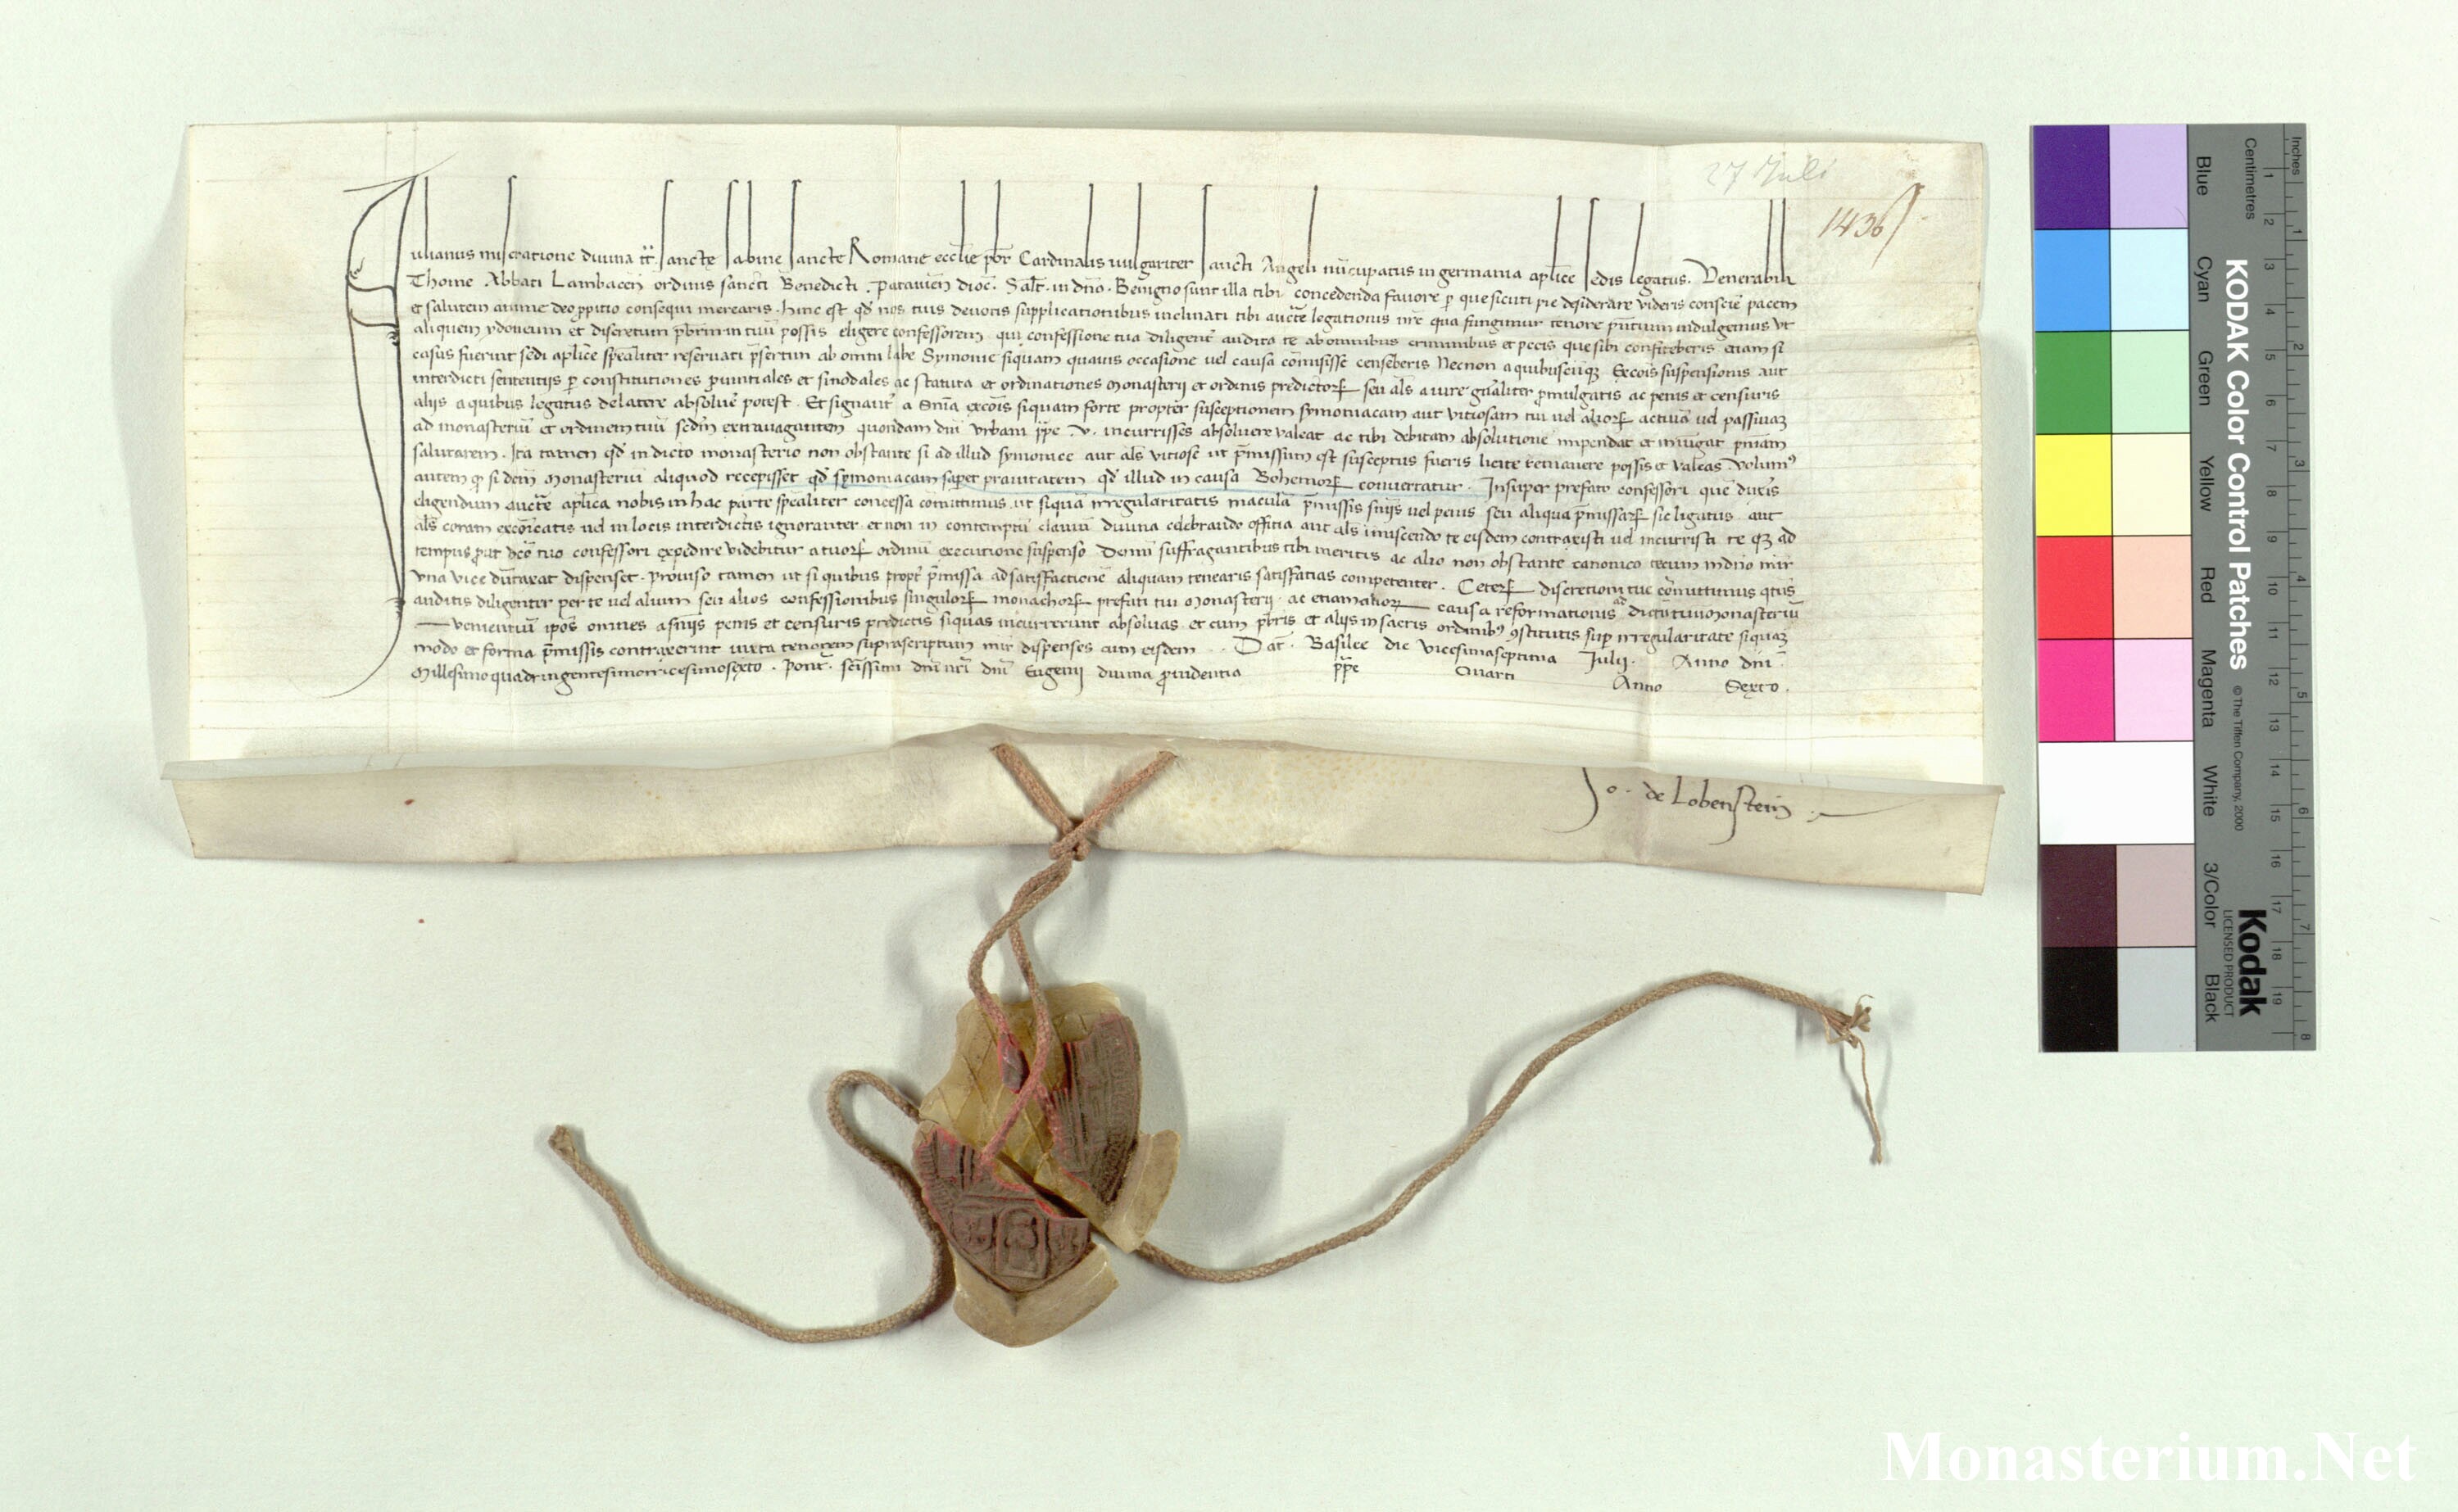 27 Juli
1436
Iulianus miseratione divina tt. sancte Sabine sancte Romane eccl̄ie pb̄r Cardinalis vulgariter sancti Angeli nūcupatus in germania ap̄lice sedis legatus. Venerabili
Thome Abbati Lambaceñ ordinis sancti Benedicti . Patavieñ dioc̄ . Sal̄t . in dño . Benignio sunt illa tibi concedenda favore p que sicuti pie desiderare videris conscie pacem
et salutem anime deo ppitio consequi merearis . hinc est qđ nos tuis devotis supplicationibus inclinati tibi auct̄e legationis nr̄e qua fungimur tenore pñtium indulgemus ut
aliquem ydoneum et discretum pb̄rm in tuū possis eligere confessorem qui confessione tua diligent̄ audita te ab omnibus criminibus et pctis que sibi confiteberis etiam si
casus fuerint sedi ap̄lice sp̄ealiter reservati p̄sertim ab omni labe Symonie siquam quavis occasione vel causa cōmisisse censeberis Necnon a quibuscūq Excōis suspensionis aut
interdicti sententijs p constitutiones pvintiales et sinodales ac statuta et ordinationes monasterij et ordinis predictor seu als a iure gn̄aliter pmulgatis ac penis et censuris
alijs a quibus legatus de latere absolve potest . Et signant̄ a Sn̄ia excōis siquam forte propter susceptionem symoniacam aut vitiosam tui vel alior activā vel passivaz
ad monasteriū et ordinem tuū sedm̄ extravagantem quondam dn̄i Urbani pp̄e . v . incurrisses absolvere valeat ac tibi debitam absolutionē impendat et iniūgat pn̄iam
salutarem . Ita tamen qđ in dicto monasterio non obstante si ad illud symonice aut als vitiose ut p̄missum est susceptus fueris licite remanere possis et valeas . Volum⁹
autem q si dc̄m Monasteriū aliquod recepisset qđ symoniacam saperet pravitatem qđ illud in causa Bohemor convertatur . Insuper prefato confessori quē duxis
eligendum auct̄e ap̄lica nobis in hac parte sp̄ealiter concessa comittimus ut siquā irregularitatis maculā p̄missis sn̄ijs vel penis seu aliqua p̄missar sic ligatus aut
als coram excōicatis vel in locis interdictis ignoranter et non in contemptū claviū divina celebrando officia aut als imiscendo te eisdem contraxisti vel incurristi te q ad
tempus put dc̄o tuo confessori expedire videbitur a tuor ordinū executione suspenso . Demū suffragantibus tibi meritis ac alio non obstante canonico tecum in dño mir̄
una vice dūtaxat dispenset . Proviso tamen ut si quibus propt̄ p̄missa ad satisfactionē aliquam tenearis satisfatias competenter . Ceter discretioni tue cōmittimus qt̄us
auditis diligenter per te vel alium seu alios confessionibus singulor monachor prefati tui Monasterij . ac etiam alior causa reformationis ad dictū tuū Monasteriū
venientiū ip̄os omnes a sn̄ijs penis et censuris predictis siquas incurrerunt absolvas et cum pb̄ris et alijs in sacris ordinib⁹ ɔstitutis sup irregularitate siquaz
modo et forma p̄missis contraxerint iuxta tenorem suprascriptum mir̄ dispenses cum eisdem . . Dat̄ . Basilee die vicesimaseptima Julij . Anno dn̄i .
Millesimoquadringentesimotricesimosexto . Pont̄ . sc̄issimi dn̄i nr̄i dn̄i Eugenij divina pvidentia pp̄e Quarti Anno Sexto .
Jo . de Lobenstein
KODAK Color Control Patches
© The Tiffen Company, 2000
Kodak
LICENSED PRODUCT
Blue Cyan Green Yellow Red Magenta White 3/Color Black
Centimetres 1 2 3 4 5 6 7 8 9 10 11 12 13 14 15 16 17 18 19
Inches 1 2 3 4 5 6 7 8
Monasterium.Net